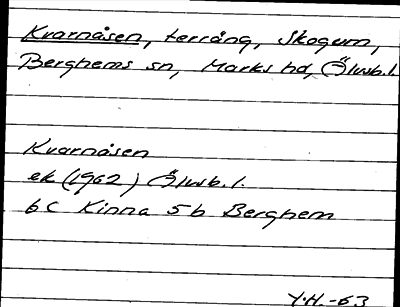 Kvarnåsen, terräng, Skogum,
Berghems sn, Marks hd, Älvsb.l.
Kvarnåsen
ek (1962) Älvsb.l.
6c Kinna 5b Berghem
Y.H.-63